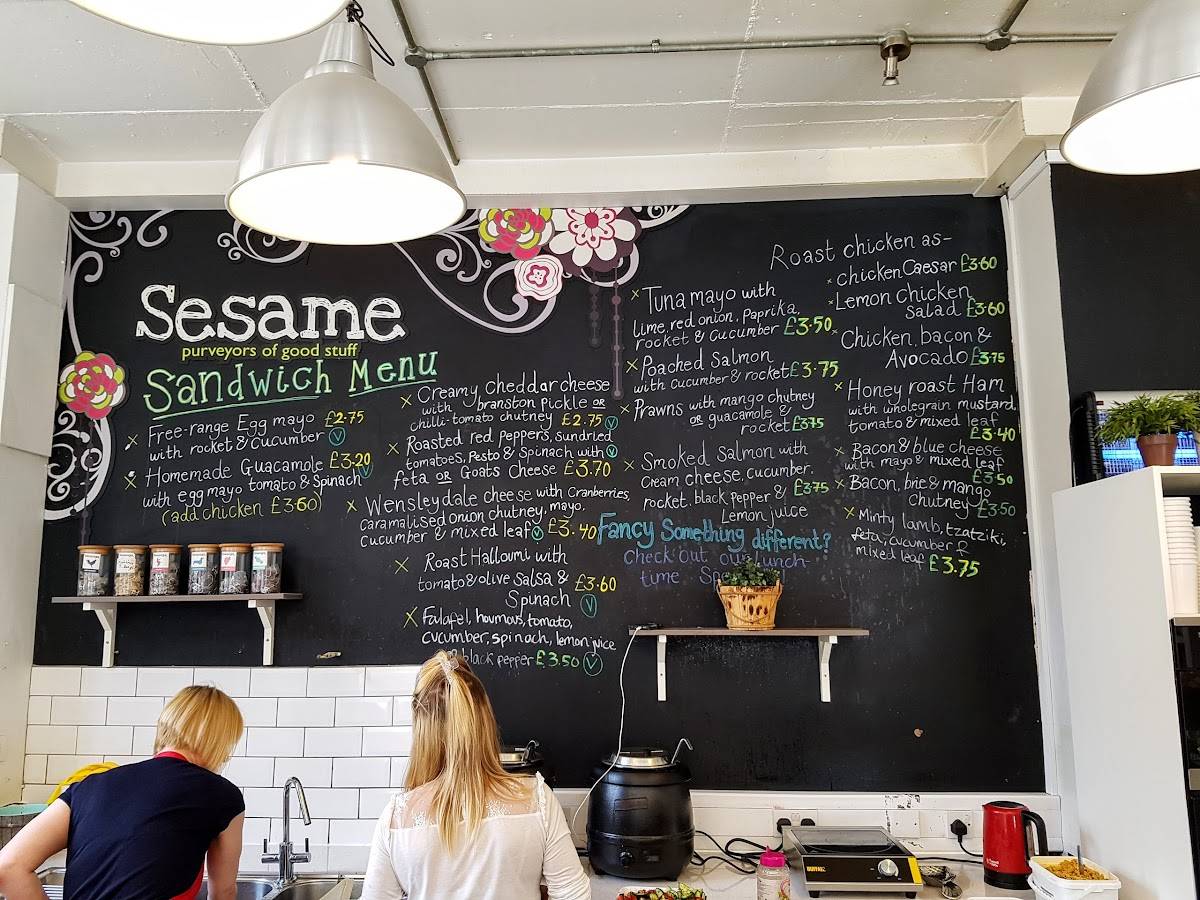 Sesame
purveyors of good stuff
Sandwich Menu
x Free-range Egg mayo £2.75
with rocket & cucumber V
x Homemade Guacamole £3.20
with egg mayo tomato & Spinach V
(add chicken £3.60)
x Creamy cheddar cheese
with branston pickle OR
chilli-tomato chutney £2.75 V
x Roasted red peppers, sundried
tomatoes, Pesto & Spinach with V
feta OR Goats Cheese £3.70
x Wensleydale cheese with Cranberries,
caramalised onion chutney, mayo.
cucumber & mixed leaf V £3.40
x Roast Halloumi with
tomato & olive Salsa & £3.60
Spinach V
x Falafel, houmous, tomato,
cucumber, spinach, lemon juice
black pepper £3.50 V
x Tuna mayo with
lime, red onion, Paprika,
rocket & cucumber £3.50
x Poached Salmon
with cucumber & rocket £3.75
x Prawns with mango chutney
OR guacamole &
rocket £3.75
x Smoked Salmon with
cream cheese, cucumber.
rocket, black pepper & £3.75
Lemon juice
Fancy Something different?
Check out our Lunch-
time
Roast chicken as-
x chicken Caesar £3.60
x Lemon chicken
Salad £3.60
x Chicken, bacon &
Avocado £3.75
x Honey roast Ham
with wholegrain mustard,
tomato & mixed leaf
£3.40
x Bacon & blue cheese
with mayo & mixed leaf
£3.50
x Bacon, brie & mango
Chutney £3.50
x Minty lamb, tzatziki,
feta, cucumber &
mixed leaf £3.75